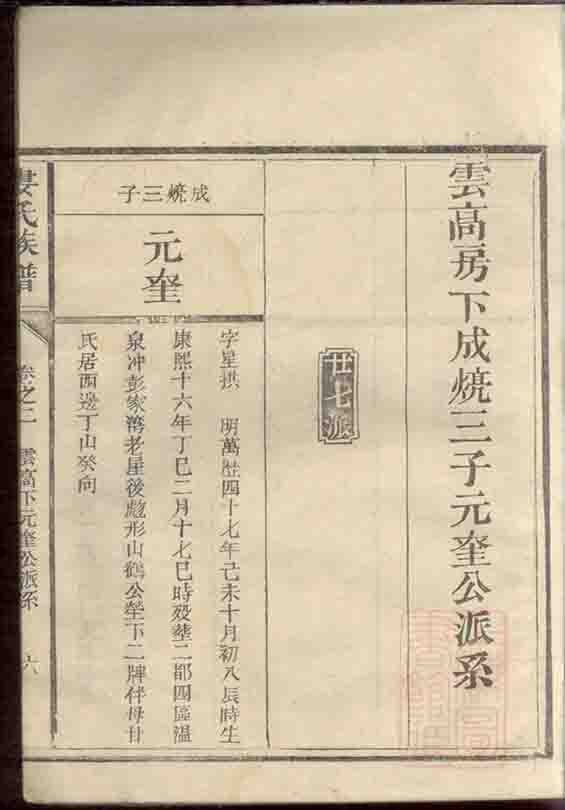 雲高房下成燒三子元奎公派系
廿七派
成燒三子
元奎
字星拱　明萬歷四十七年己未十月初八辰時生
康熙十六年丁巳二月十七巳時歿塟二都四區溫
泉冲彭家灣老屋後彪形山鶴公塋下二牌伴母甘
氏居西邊丁山癸向
婁氏族譜
卷之二　雲高下元奎公派系　六